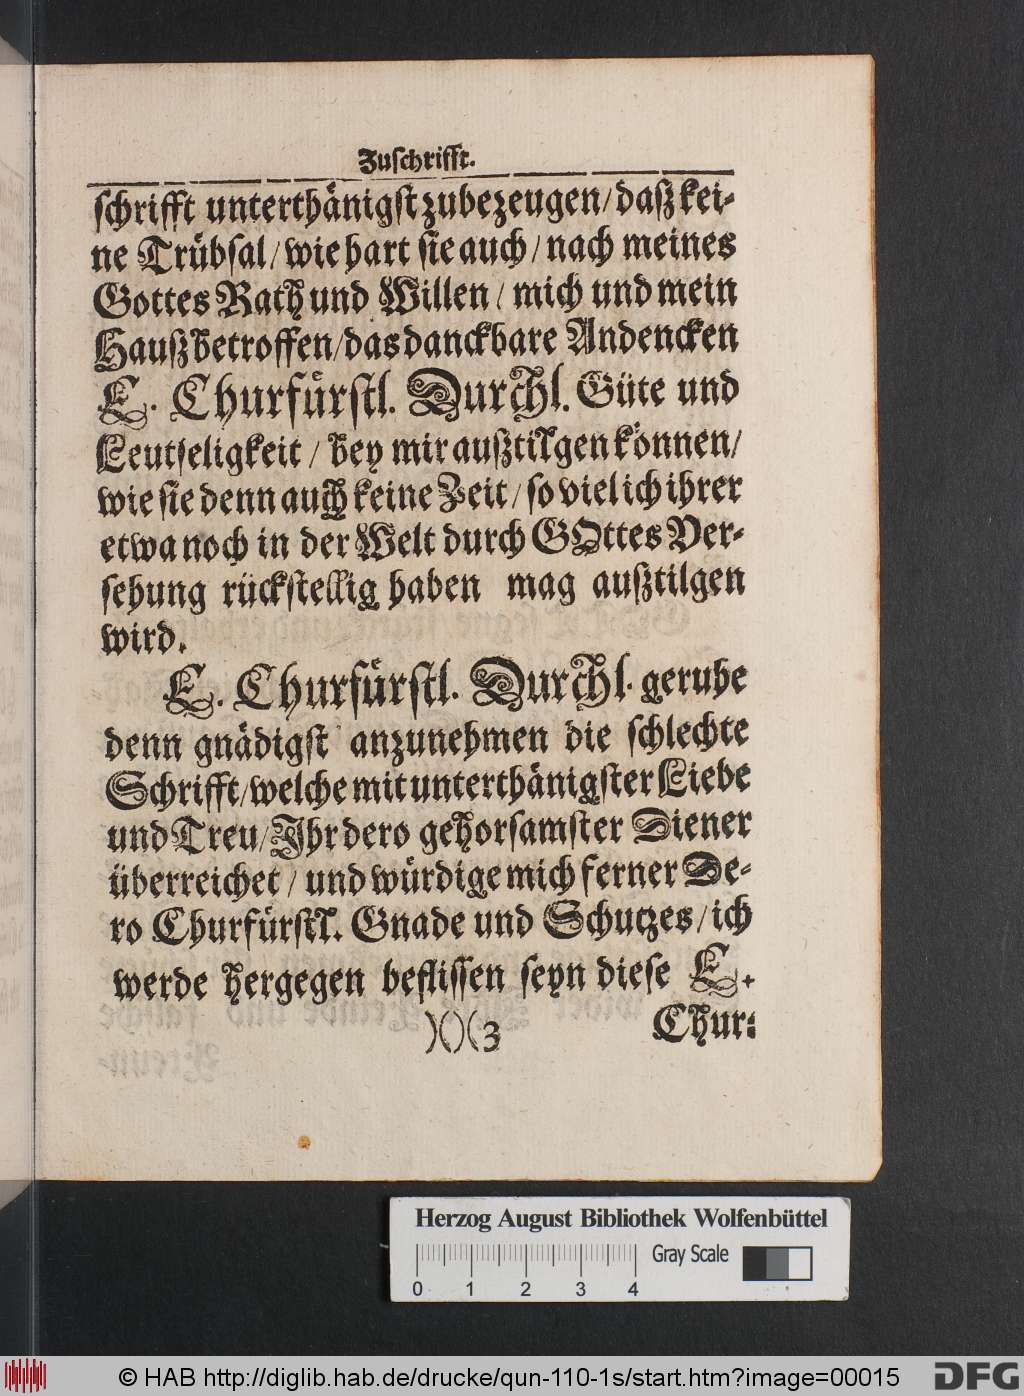 Zuschrifft.
schrifft unterthänigst zubezeugen/ daß kei-
ne Trübsal/ wie hart sie auch/ nach meines
Gottes Rath und Willen/ mich und mein
Hauß betroffen/ das danckbare Andencken
E. Churfürstl. Durchl. Güte und
Leutseligkeit/ bey mir außtilgen können/
wie sie denn auch keine Zeit/ so viel ich ihrer
etwa noch in der Welt durch GOttes Ver-
sehung rückstellig haben mag außtilgen
wird.
E. Churfürstl. Durchl. geruhe
denn gnädigst anzunehmen die schlechte
Schrifft/ welche mit unterthänigster Liebe
und Treu/ Ihr dero gehorsamster Diener
überreichet/ und würdige mich ferner De-
ro Churfürstl. Gnade und Schutzes/ ich
werde hergegen beflissen seyn diese E.
)()( 3
Chur-
Herzog August Bibliothek Wolfenbüttel
Gray Scale
0 1 2 3 4
© HAB http://diglib.hab.de/drucke/qun-110-1s/start.htm?image=00015
DFG